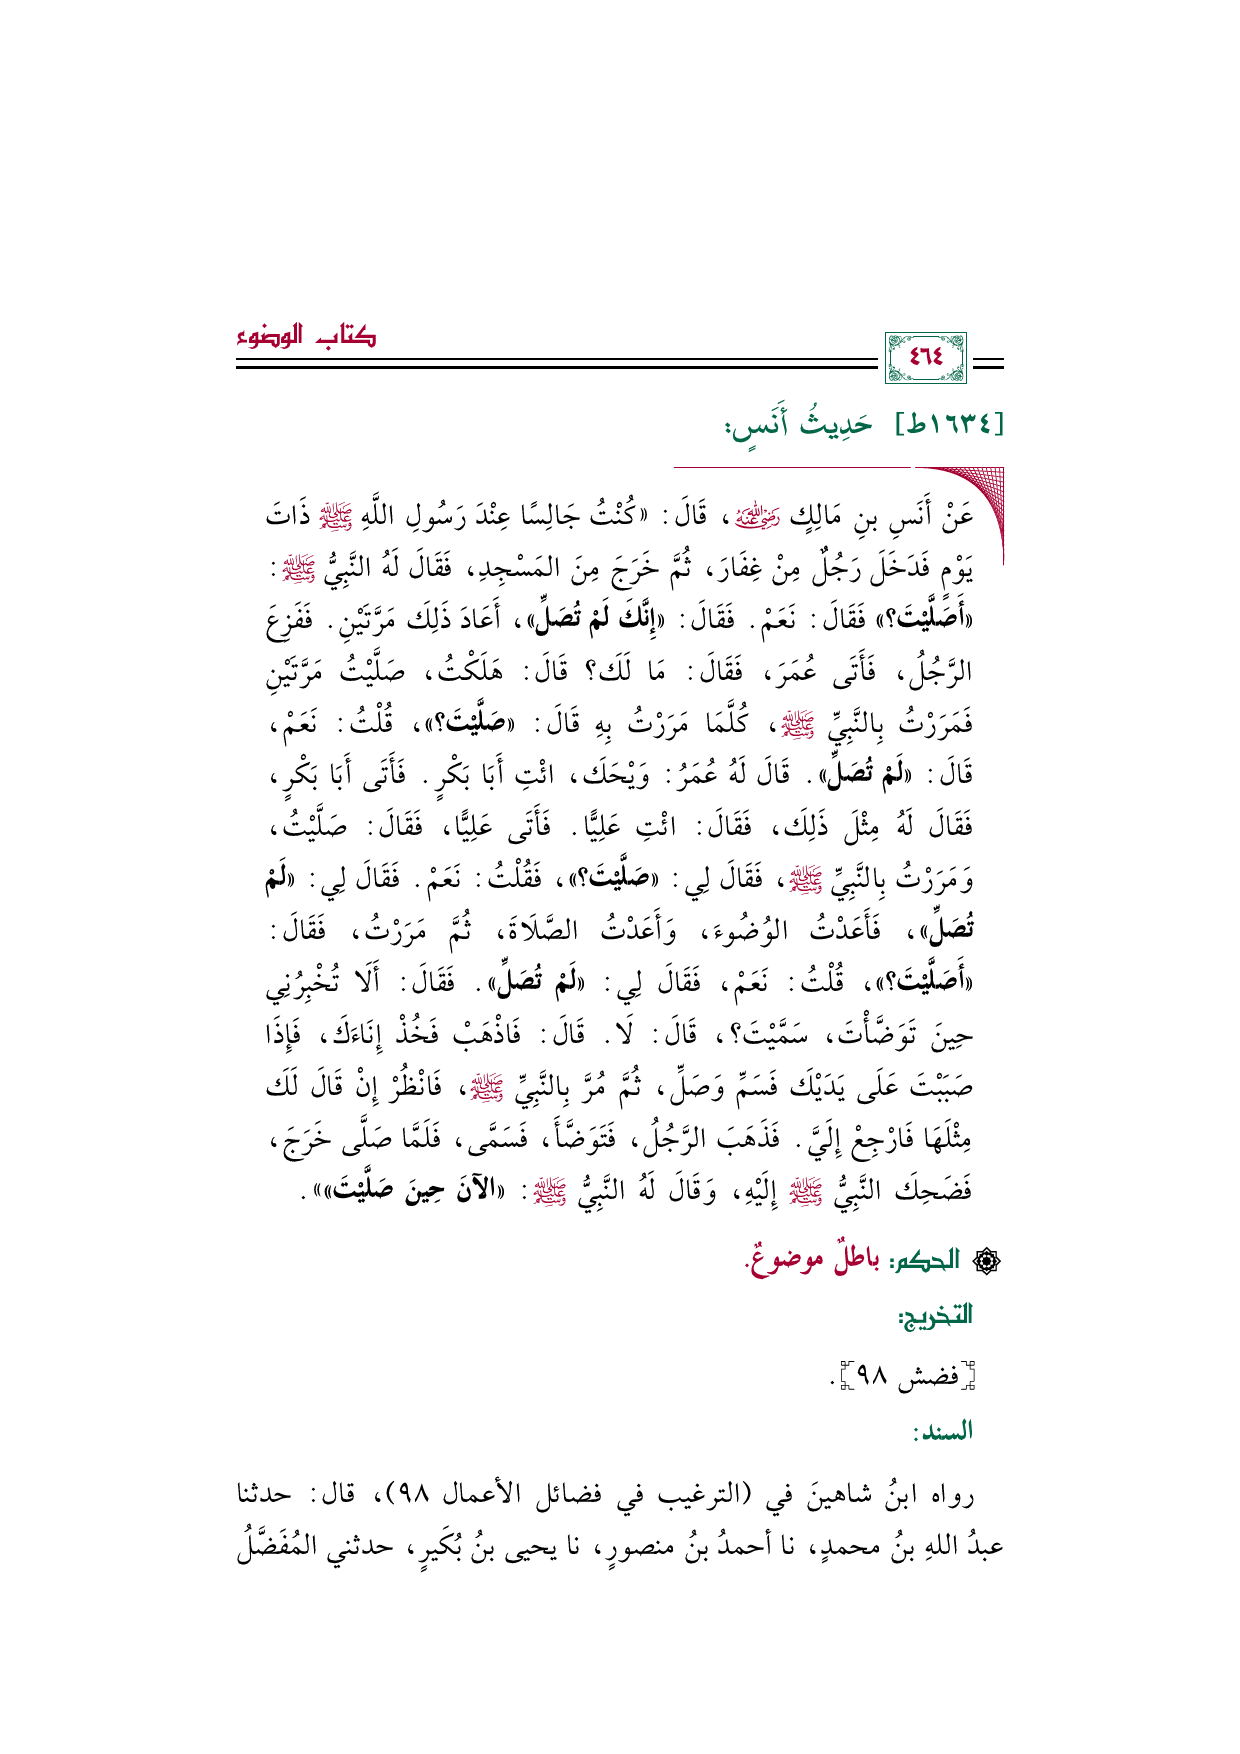 كتاب الوضوء
٤٦٤
[١٦٣٤ط] حَدِيثُ أَنَسٍ:
عَنْ أَنَسِ بنِ مَالِكٍ رضي الله عنه، قَالَ: «كُنْتُ جَالِسًا عِنْدَ رَسُولِ اللَّهِ ﷺ ذَاتَ
يَوْمٍ فَدَخَلَ رَجُلٌ مِنْ غِفَارَ، ثُمَّ خَرَجَ مِنَ المَسْجِدِ، فَقَالَ لَهُ النَّبِيُّ ﷺ:
«أَصَلَّيْتَ؟» فَقَالَ: نَعَمْ. فَقَالَ: «إِنَّكَ لَمْ تُصَلِّ»، أَعَادَ ذَلِكَ مَرَّتَيْنِ. فَفَزِعَ
الرَّجُلُ، فَأَتَى عُمَرَ، فَقَالَ: مَا لَكَ؟ قَالَ: هَلَكْتُ، صَلَّيْتُ مَرَّتَيْنِ
فَمَرَرْتُ بِالنَّبِيِّ ﷺ، كُلَّمَا مَرَرْتُ بِهِ قَالَ: «صَلَّيْتَ؟»، قُلْتُ: نَعَمْ،
قَالَ: «لَمْ تُصَلِّ». قَالَ لَهُ عُمَرُ: وَيْحَكَ، ائْتِ أَبَا بَكْرٍ. فَأَتَى أَبَا بَكْرٍ،
فَقَالَ لَهُ مِثْلَ ذَلِكَ، فَقَالَ: ائْتِ عَلِيًّا. فَأَتَى عَلِيًّا، فَقَالَ: صَلَّيْتُ،
وَمَرَرْتُ بِالنَّبِيِّ ﷺ، فَقَالَ لِي: «صَلَّيْتَ؟»، فَقُلْتُ: نَعَمْ. فَقَالَ لِي: «لَمْ
تُصَلِّ»، فَأَعَدْتُ الوُضُوءَ، وَأَعَدْتُ الصَّلَاةَ، ثُمَّ مَرَرْتُ، فَقَالَ:
«أَصَلَّيْتَ؟»، قُلْتُ: نَعَمْ، فَقَالَ لِي: «لَمْ تُصَلِّ». فَقَالَ: أَلَا تُخْبِرُنِي
حِينَ تَوَضَّأْتَ، سَمَّيْتَ؟، قَالَ: لَا. قَالَ: فَاذْهَبْ فَخُذْ إِنَاءَكَ، فَإِذَا
صَبَبْتَ عَلَى يَدَيْكَ فَسَمِّ وَصَلِّ، ثُمَّ مُرَّ بِالنَّبِيِّ ﷺ، فَانْظُرْ إِنْ قَالَ لَكَ
مِثْلَهَا فَارْجِعْ إِلَيَّ. فَذَهَبَ الرَّجُلُ، فَتَوَضَّأَ، فَسَمَّى، فَلَمَّا صَلَّى خَرَجَ،
فَضَحِكَ النَّبِيُّ ﷺ إِلَيْهِ، وَقَالَ لَهُ النَّبِيُّ ﷺ: «الآنَ حِينَ صَلَّيْتَ»».
الحكم: باطلٌ موضوعٌ.
التخريج:
[فضش ٩٨].
السند:
رواه ابنُ شاهينَ في (الترغيب في فضائل الأعمال ٩٨)، قال: حدثنا
عبدُ اللهِ بنُ محمدٍ، نا أحمدُ بنُ منصورٍ، نا يحيى بنُ بُكَيرٍ، حدثني المُفَضَّلُ